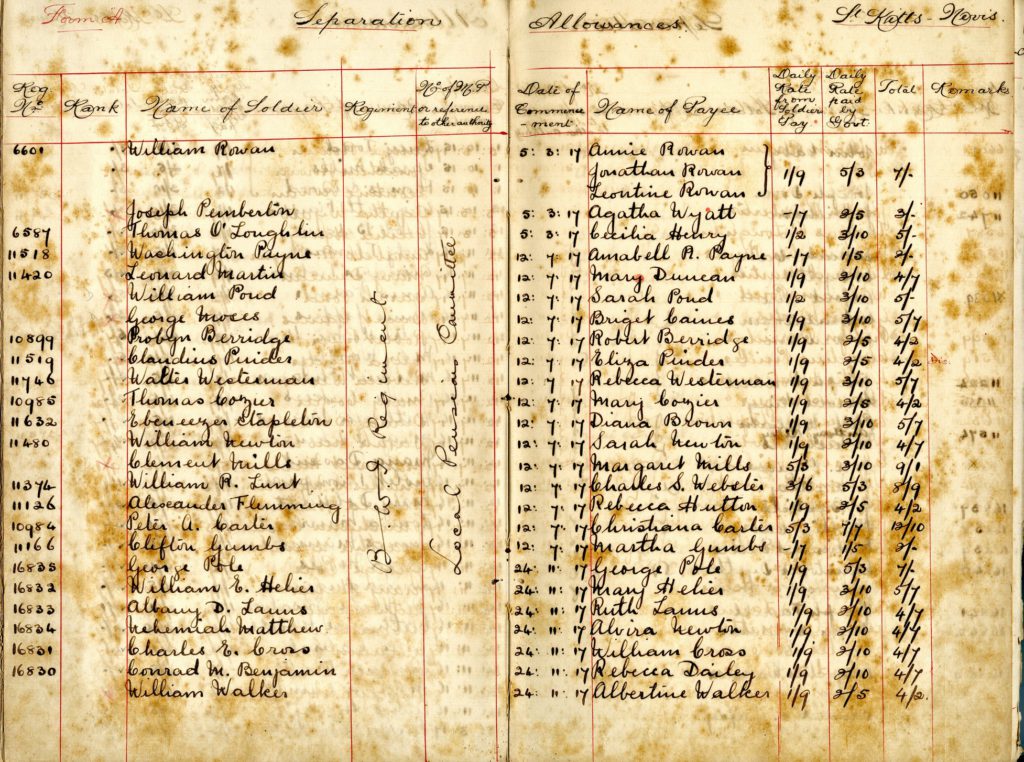 Form A Separation Allowances. St Kitts - Nevis.
Reg. No. Rank Name of Soldier Regiment No. of M.P or reference to other authority Date of Commence-ment. Name of Payee Daily Rate from Soldier Pay Daily Rate paid by Govt. Total Remarks
6601 William Rowan 5: 3: 17 Annie Rowan
Jonathan Rowan 1/9 5/3 7/-
Leontine Rowan
Joseph Pemberton 5: 3: 17 Agatha Wyatt -/7 2/5 3/-
6587 Thomas O'Loughlin 5: 3: 17 Cecilia Henry 1/2 3/10 5/-
11518 Washington Payne 12: 7: 17 Annabell R. Payne -/7 1/5 2/-
11420 Leonard Martin 12: 7: 17 Mary Duncan 1/9 2/10 4/7
William Pond 12: 7: 17 Sarah Pond 1/2 3/10 5/-
George Moses 12: 7: 17 Briget Caines 1/9 3/10 5/7
10899 Probyn Berridge 12: 7: 17 Robert Berridge 1/9 2/5 4/2
11519 Claudius Pinder 12: 7: 17 Eliza Pinder 1/9 2/5 4/2
11746 Walter Westerman 12: 7: 17 Rebecca Westerman 1/9 3/10 5/7
10985 Thomas Cozier 12: 7: 17 Mary Cozier 1/9 2/5 4/2
11632 Ebeneezer Stapleton 12: 7: 17 Diana Brown 1/9 3/10 5/7
11480 William Newton 12: 7: 17 Sarah Newton 1/9 2/10 4/7
Clement Mills 12: 7: 17 Margaret Mills 5/3 3/10 9/1
11374 William R. Lunt 12: 7: 17 Charles S. Webster 3/6 5/3 8/9
11126 Alexander Flemming 12: 7: 17 Rebecca Hutton 1/9 2/5 4/2
10984 Peter A. Carter 12: 7: 17 Christiana Carter 5/3 7/7 12/10
11166 Clifton Gumbs 12: 7: 17 Martha Gumbs -/7 1/5 2/-
16835 George Pole 24: 11: 17 George Pole 1/9 5/3 7/-
16832 William E. Helier 24: 11: 17 Mary Helier 1/9 3/10 5/7
16833 Albany D. Lanns 24: 11: 17 Ruth Lanns 1/9 2/10 4/7
16834 Nehemiah Matthew. 24: 11: 17 Alvira Newton 1/9 2/10 4/7
16831 Charles E. Cross 24: 11: 17 William Cross 1/9 2/10 4/7
16830 Conrad M. Benjamin 24: 11: 17 Rebecca Dailey 1/9 2/10 4/7
William Walker 24: 11: 17 Albertine Walker 1/9 2/5 4/2.
B. W. I Regiment
Local Pension Committee